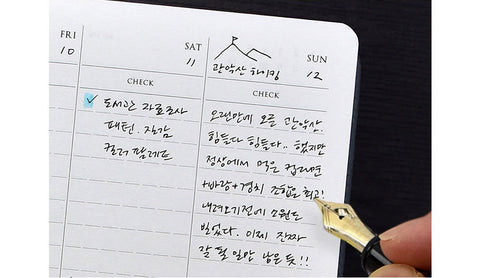 FRI
10
SAT
11
CHECK
✓ 도서관 자료조사
패턴. 질감
컬러 팔레트
관악산 하이킹
SUN
12
CHECK
오랜만에 오른 관악산.
힘들다 힘들다.. 했지만
정상에서 먹은 컵라면
+바람+경치 조합은 최고!
내려오기전에 소원도
빌었다. 이제 진짜
잘 될 일만 남은 듯!!